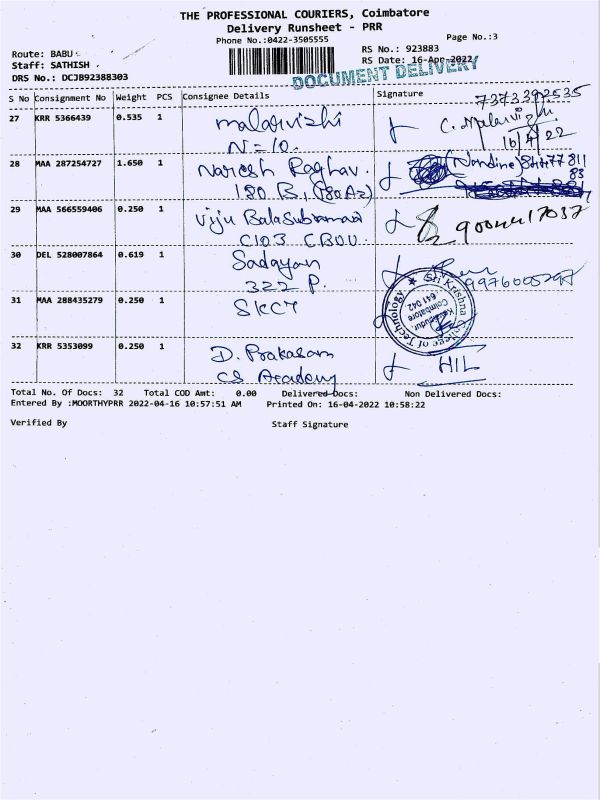 THE PROFESSIONAL COURIERS, Coimbatore
Delivery Runsheet - PRR
Phone No.:0422-3505555
Page No.:3
Route: BABU
Staff: SATHISH .
DRS No.: DCJB92388303
RS No.: 923883
RS Date: 16-Apr-2022
DOCUMENT DELIVERY
S No Consignment No Weight PCS Consignee Details Signature
7373392535
27 KRR 5366439 0.535 1 malarvizhi C. Malarvizhi
N=10. 16/4/22
28 MAA 287254727 1.650 1 Naresh Raghav. (Nandine)
180 B, (180A2)
29 MAA 566559406 0.250 1 Viju Balasubramani
C103 CBDU.
30 DEL 528007864 0.619 1 Sadayan
322 P.
31 MAA 288435279 0.250 1 SKCT
Sri Krishna College of Technology
Kovaipudur
Coimbatore
641 042
32 KRR 5353099 0.250 1 D. Prakasam HIL
CS Academy
Total No. Of Docs: 32 Total COD Amt: 0.00 Delivered Docs: Non Delivered Docs:
Entered By :MOORTHYPRR 2022-04-16 10:57:51 AM Printed On: 16-04-2022 10:58:22
Verified By Staff Signature